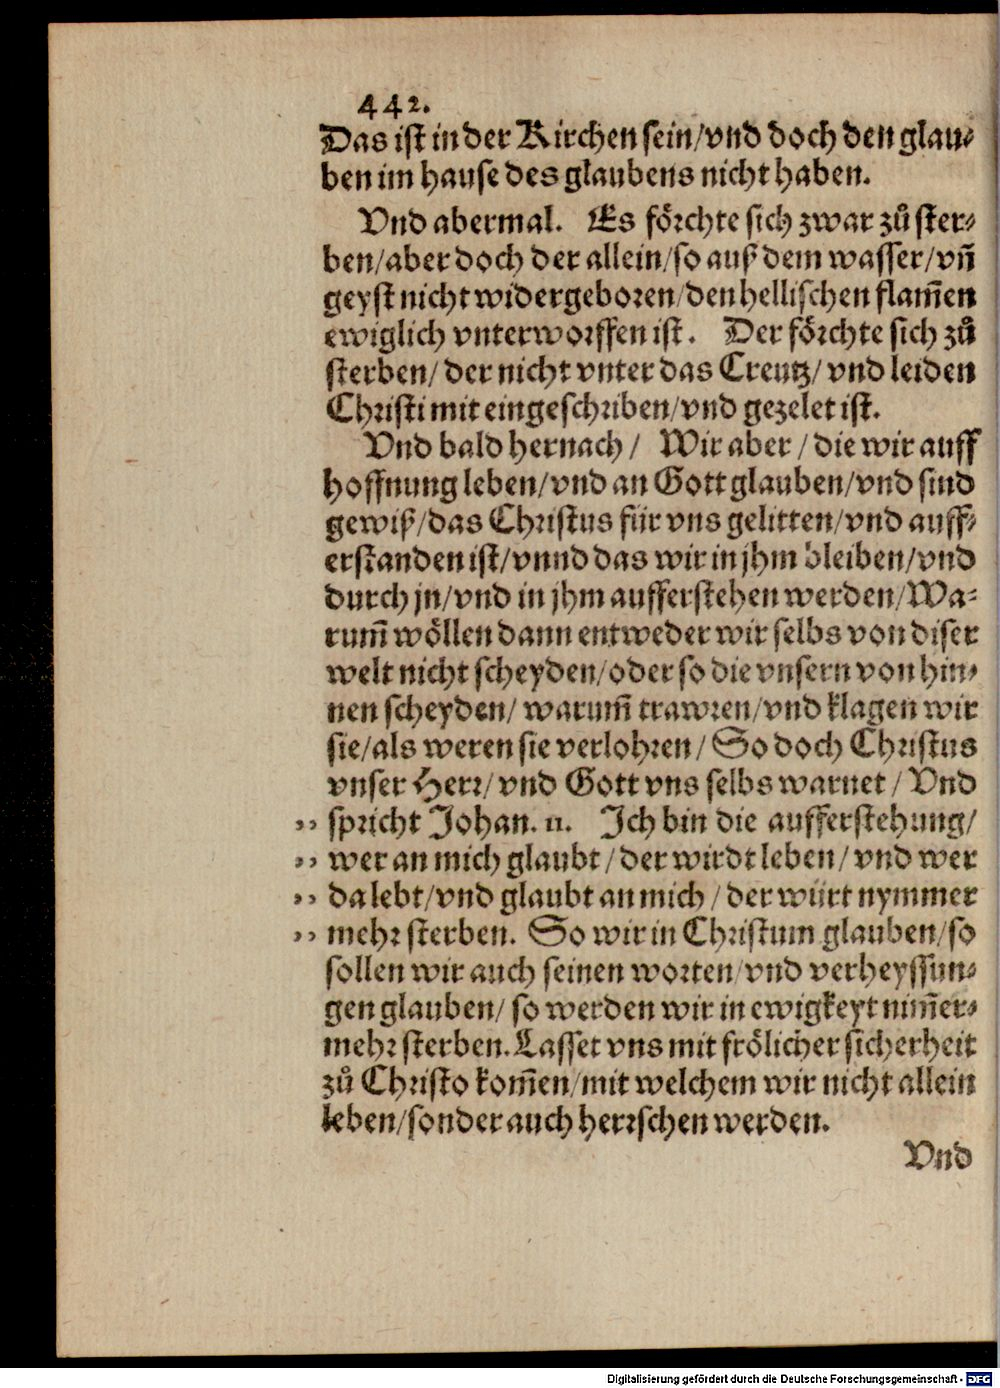 442.
Das ist in der Kirchen sein/vnd doch den glau⸗
ben im hause des glaubens nicht haben.
Vnd abermal. Es förchte sich zwar zů ster⸗
ben/aber doch der allein/so auß dem wasser/vn̄
geyst nicht widergeboren/den hellischen flam̄en
ewiglich vnterworffen ist. Der förchte sich zů
sterben/ der nicht vnter das Creutz/ vnd leiden
Christi mit eingeschriben/vnd gezelet ist.
Vnd bald hernach / Wir aber / die wir auff
hoffnung leben/vnd an Gott glauben/vnd sind
gewiß/das Christus für vns gelitten/vnd auff⸗
erstanden ist/vnnd das wir in jhm bleiben/vnd
durch jn/vnd in jhm aufferstehen werden/Wa⸗
rum̄ wöllen dann entweder wir selbs von diser
welt nicht scheyden/oder so die vnsern von hin⸗
nen scheyden/ warum̄ trawren/vnd klagen wir
sie/als weren sie verlohren/ So doch Christus
vnser Herr/ vnd Gott vns selbs warnet / Vnd
„ spricht Johan. 11. Ich bin die aufferstehung/
„ wer an mich glaubt / der wirdt leben/ vnd wer
„ da lebt/vnd glaubt an mich / der würt nymmer
„ mehr sterben. So wir in Christum glauben/so
sollen wir auch seinen worten/vnd verheyssun⸗
gen glauben/ so werden wir in ewigkeyt nim̄er⸗
mehr sterben. Lasset vns mit frölicher sicherheit
zů Christo kom̄en/mit welchem wir nicht allein
leben/sonder auch herrschen werden.
Vnd
Digitalisierung gefördert durch die Deutsche Forschungsgemeinschaft - DFG